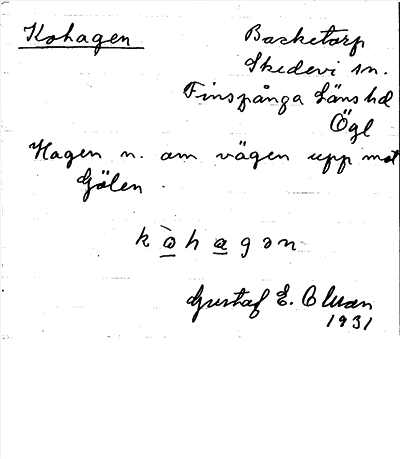 Kohagen
Basketorp
Skedevi sn.
Finspånga Läns hd
Ögl
Hagen n. om vägen upp mot
Gölen.
kòhagən
Gustaf E. Olsson
1931